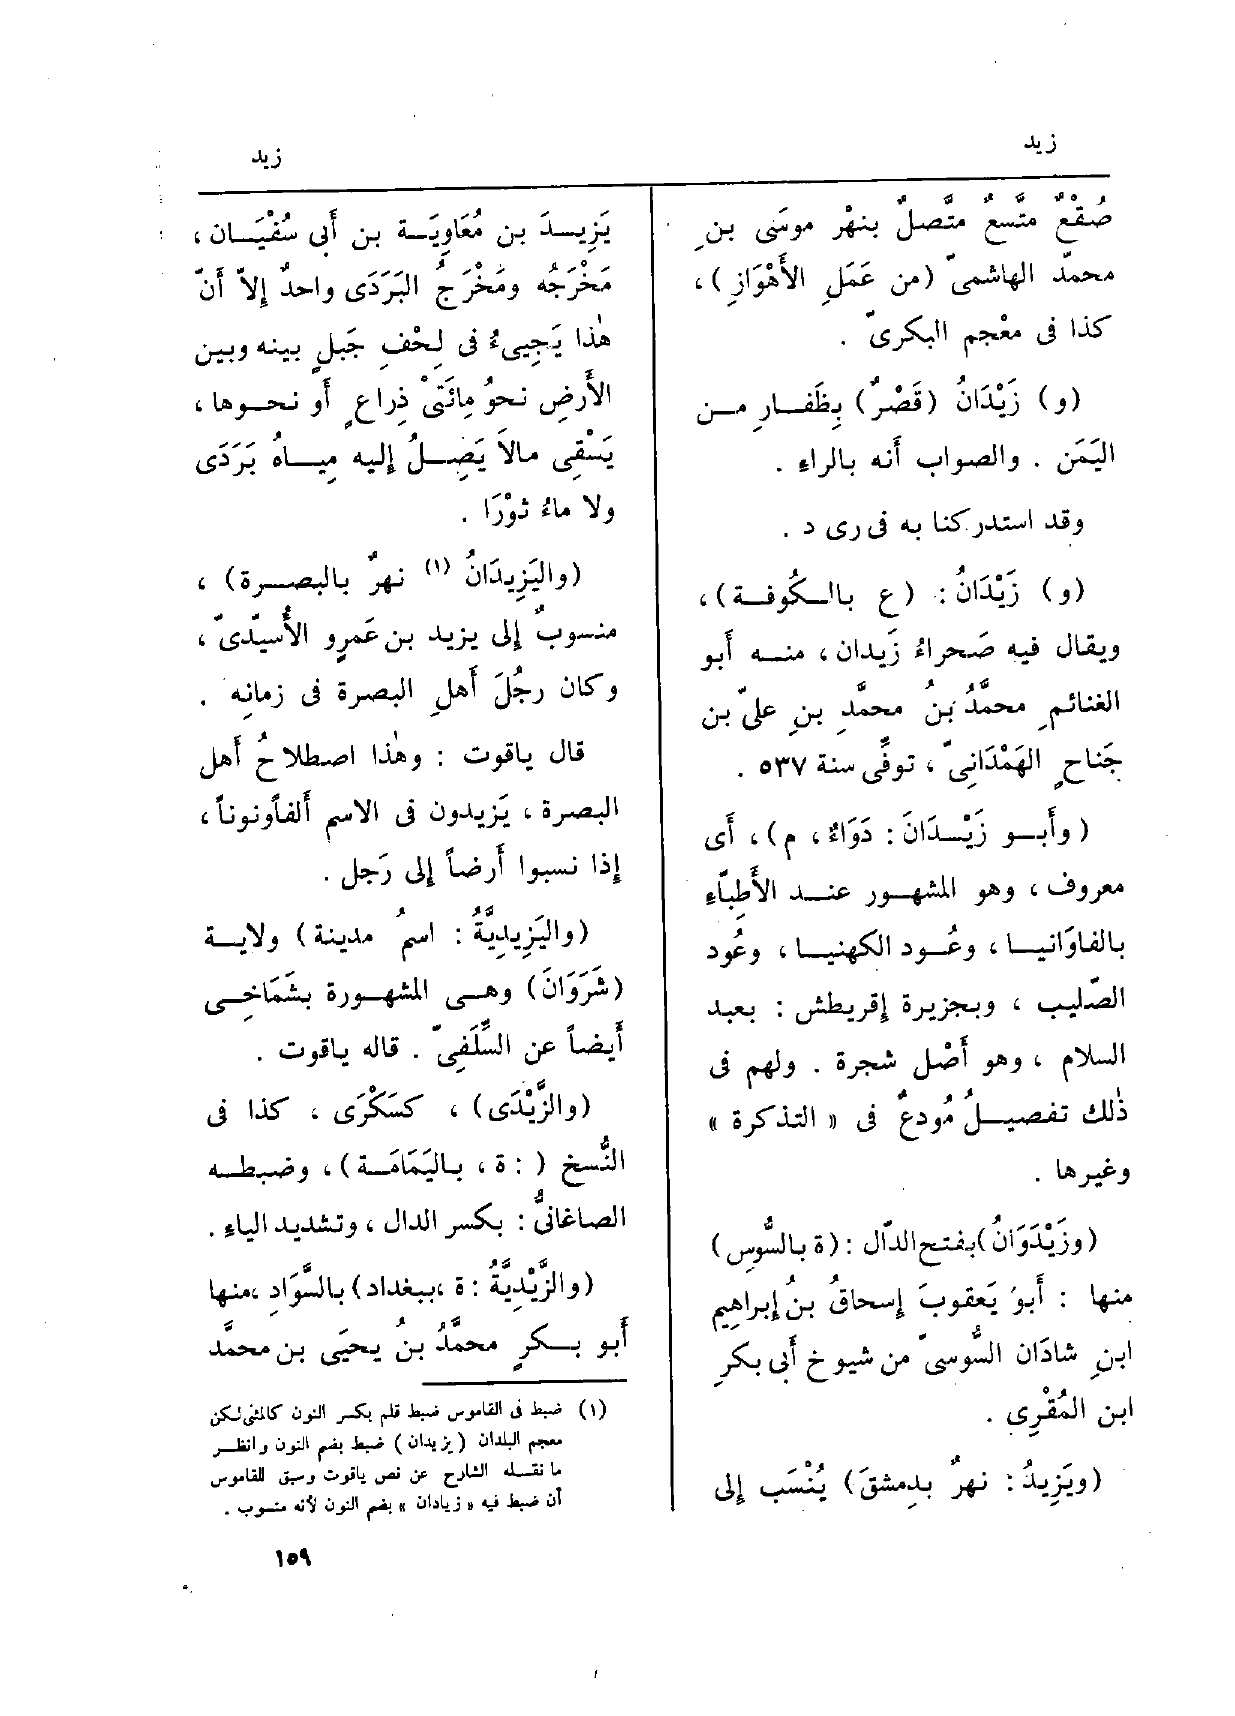 زيد
صُقْعٌ متَّسعٌ متَّصلٌ بنهْر موسَى بنِ
محمّد الهاشمىّ (من عَمَلِ الأَهْوَازِ)،
كذا فى معْجم البكرىّ .
(و) زَيْدَانُ (قَصْرٌ) بِظَفَارِ من
اليَمَن . والصواب أنه بالراء .
وقد استدركنا به فى رى د .
(و) زَيْدَانُ : (ع بالكُوفة)،
ويقال فيه صَحراءُ زَيدان، منه أَبو
الغنائمِ محمَّدُ بنُ محمَّدِ بنِ علىّ بن
جَناحٍ الهَمْدَانىّ، توفِّىَ سنة ٥٣٧ .
(وأَبو زَيْدَانَ : دَوَاءٌ، م)، أَى
معروف، وهو المشهور عند الأَطِبّاءِ
بالفاوَانيا، وعُود الكهنيا، وعُود
الصّليب، وبجزيرة إقريطش : بعبد
السلام، وهو أَصْل شجرة . ولهم فى
ذٰلك تفصيلُ مُودعٌ فى « التذكرة »
وغيرها .
(وزَيْدَوَانُ) بفتح الدّال : (ة بالسُّوسِ)
منها : أَبو يَعقوبَ إسحاقُ بنُ إبراهيم
ابنِ شادَان السُّوسىّ من شيوخ أَبى بكرِ
ابن المُقْرِى .
(ويَزِيدُ : نهرٌ بدِمشقَ) يُنْسَب إلى
زيد
يَزِيدَ بن مُعَاوِيَة بن أَبى سُفْيَان،
مَخْرَجُه ومَخْرَجُ البَرَدَى واحدٌ إلاّ أَنّ
هٰذا يَجِيىءُ فى لِحْفِ جَبلٍ بينه وبين
الأَرضِ نحوُ مِائَتَىْ ذِراعٍ أَو نحوها،
يَسْقِى مالاَ يَصِلُ إليه مِياهُ بَرَدَى
ولا ماءُ ثَوْرَا .
(واليَزِيدَانُ (١) نهرٌ بالبصرة)،
منسوبٌ إلى يزيد بن عَمرٍو الأُسيّدىّ،
وكان رجُلَ أَهلِ البصرة فى زمانِه .
قال ياقوت : وهٰذا اصطلاحُ أَهل
البصرة، يَزيدون فى الاسم أَلفاًونوناً،
إذا نسبوا أَرضاً إلى رَجل .
(واليَزِيدِيَّةُ : اسمُ مدينة) ولاية
(شَرَوَانَ) وهى المشهورة بشَمَاخِى
أَيضاً عن السِّلَفِىّ . قاله ياقوت .
(والزَّيْدَى)، كسَكْرَى، كذا فى
النُّسخ ( : ة، باليَمَامَة)، وضبطه
الصاغانىُّ : بكسر الدال، وتشديد الياء .
(والزَّيْدِيَّةُ : ة، ببغداد) بالسَّوَادِ، منها
أَبو بكرٍ محمَّدُ بنُ يحيَى بن محمَّد
(١) ضبط فى القاموس ضبط قلم بكسر النون كالمثنى لكن
معجم البلدان (يزيدان) ضبط بضم النون وانظر
ما نقله الشارح عن نص ياقوت وسبق القاموس
أن ضبط فيه « زيادان » بضم النون لأنه منسوب .
١٥٩